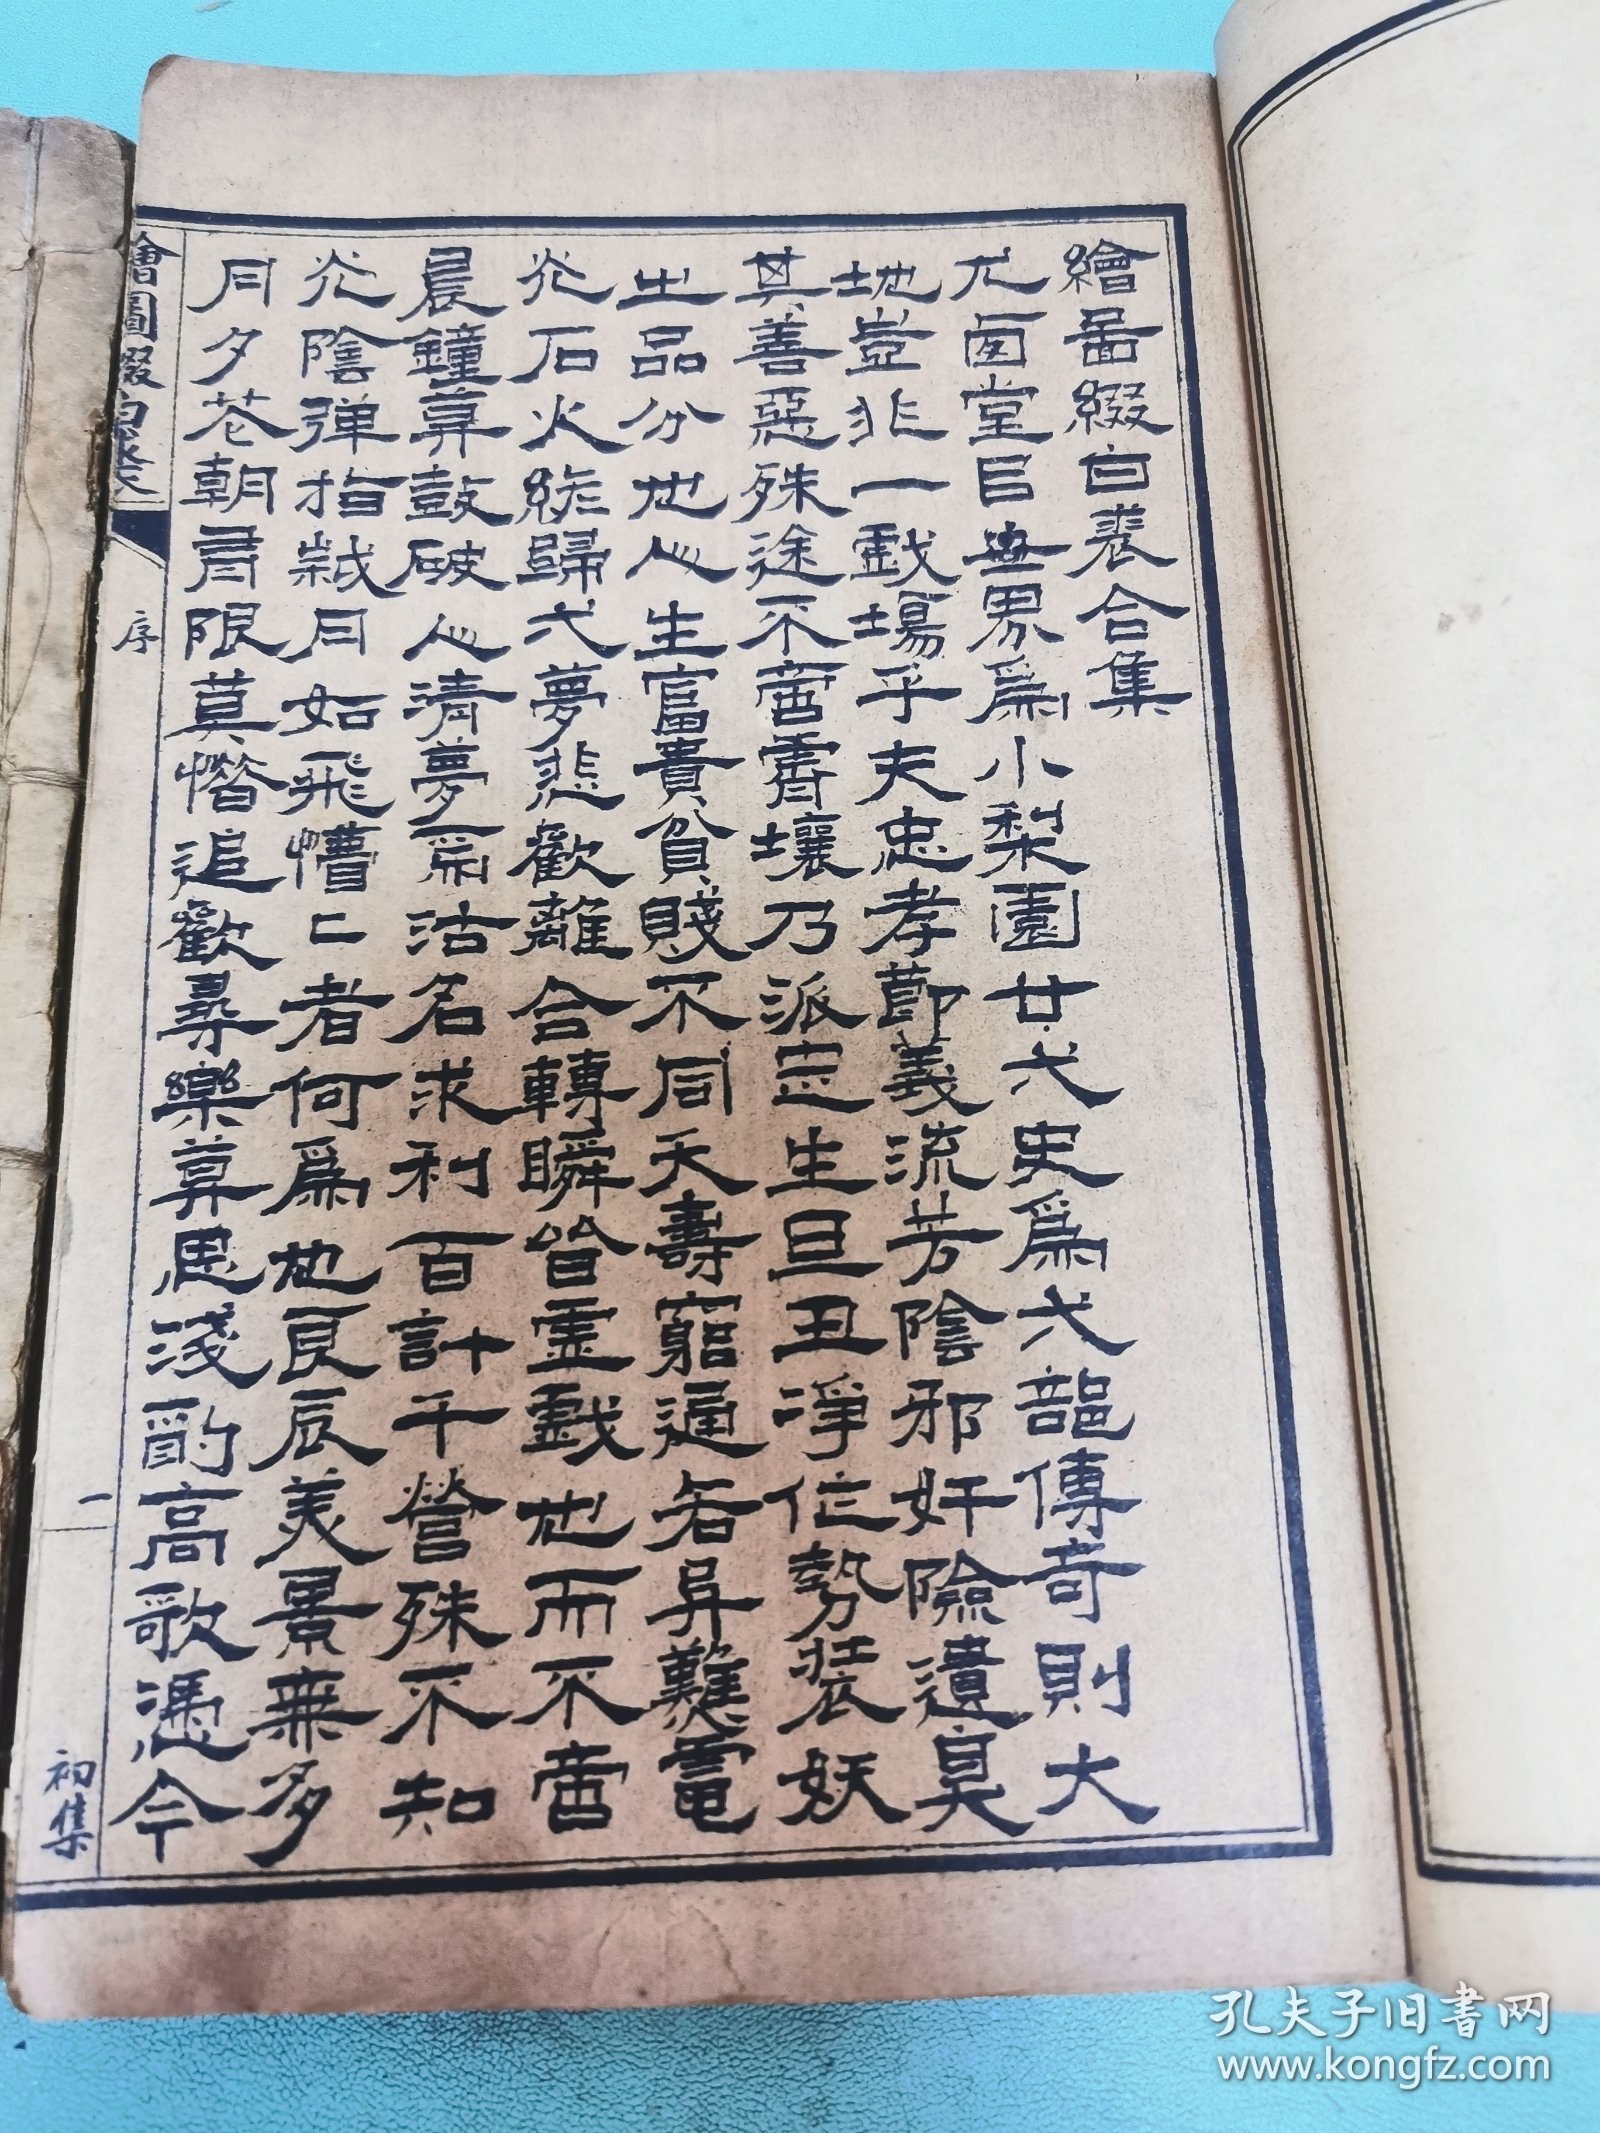 繪圖綴白裘合集
尤西堂㠯世界爲小梨園廿弌史爲弌部傳奇則大
地豈非一戲場乎夫忠孝節義流芳陰邪奸險遺臭
其善惡殊途不啻霄壤乃派定生旦丑淨作勢裝妖
之品分也心生富貴貧賤不同夭壽窮通若異難電
光石火終歸弌夢悲歡離合轉瞬皆虛戲也而不啻
晨鐘暮鼓破心清夢焉沽名求利百計千營殊不知
光陰彈指歲月如飛懵〻者何爲也良辰美景無多
月夕花朝有限莫惜追歡尋樂算思淺酌高歌憑今
繪圖綴白裘
序
一
初集
孔夫子旧书网
www.kongfz.com